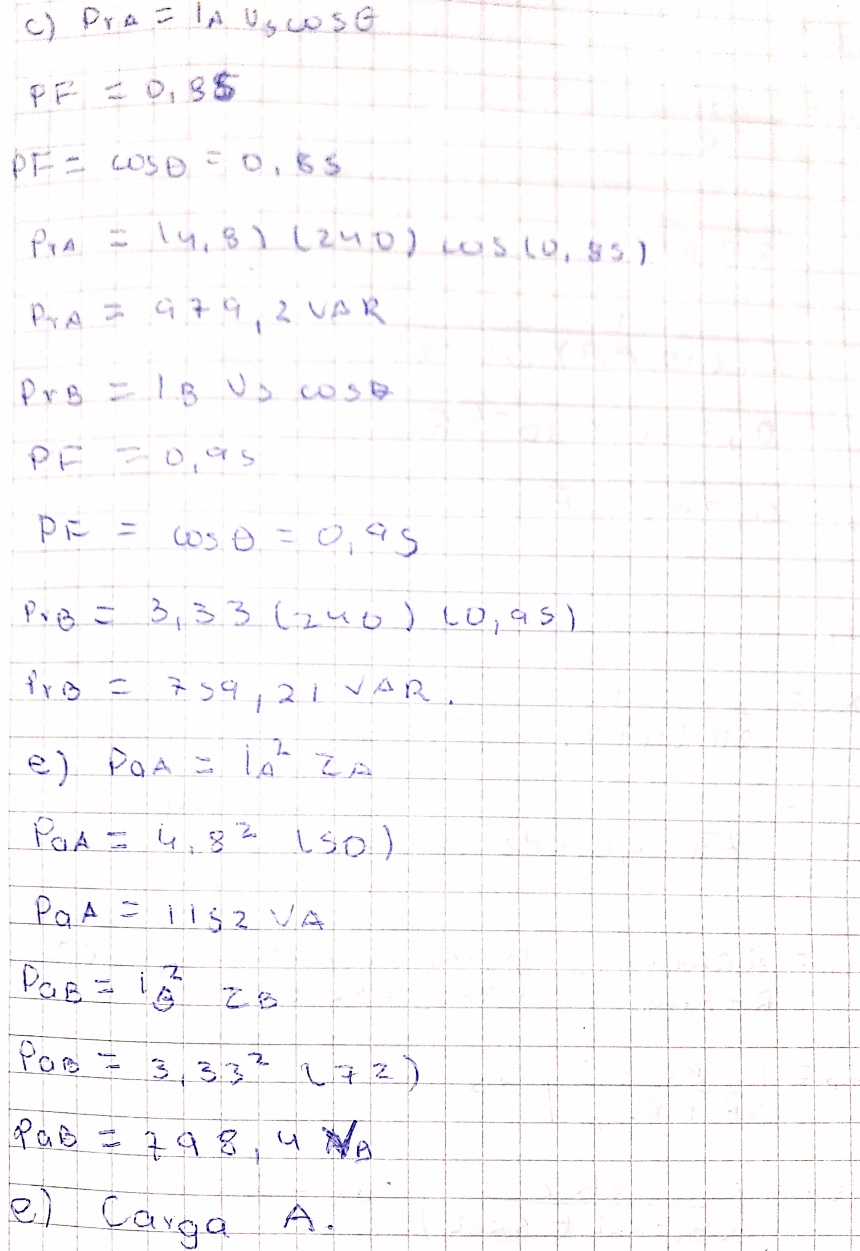 c) PrA = IA Vs cosθ
PF = 0,85
PF = cosθ = 0,85
PrA = (4,8) (240) cos(0,85)
PrA = 979,2 VAR
PrB = IB Vs cosθ
PF = 0,95
PF = cosθ = 0,95
PrB = 3,33 (240) (0,95)
PrB = 759,21 VAR.
e) PaA = IA² ZA
PaA = 4,8² (50)
PaA = 1152 VA
PaB = iB² ZB
PaB = 3,33² (72)
PaB = 798,4 VA
e) Carga A.